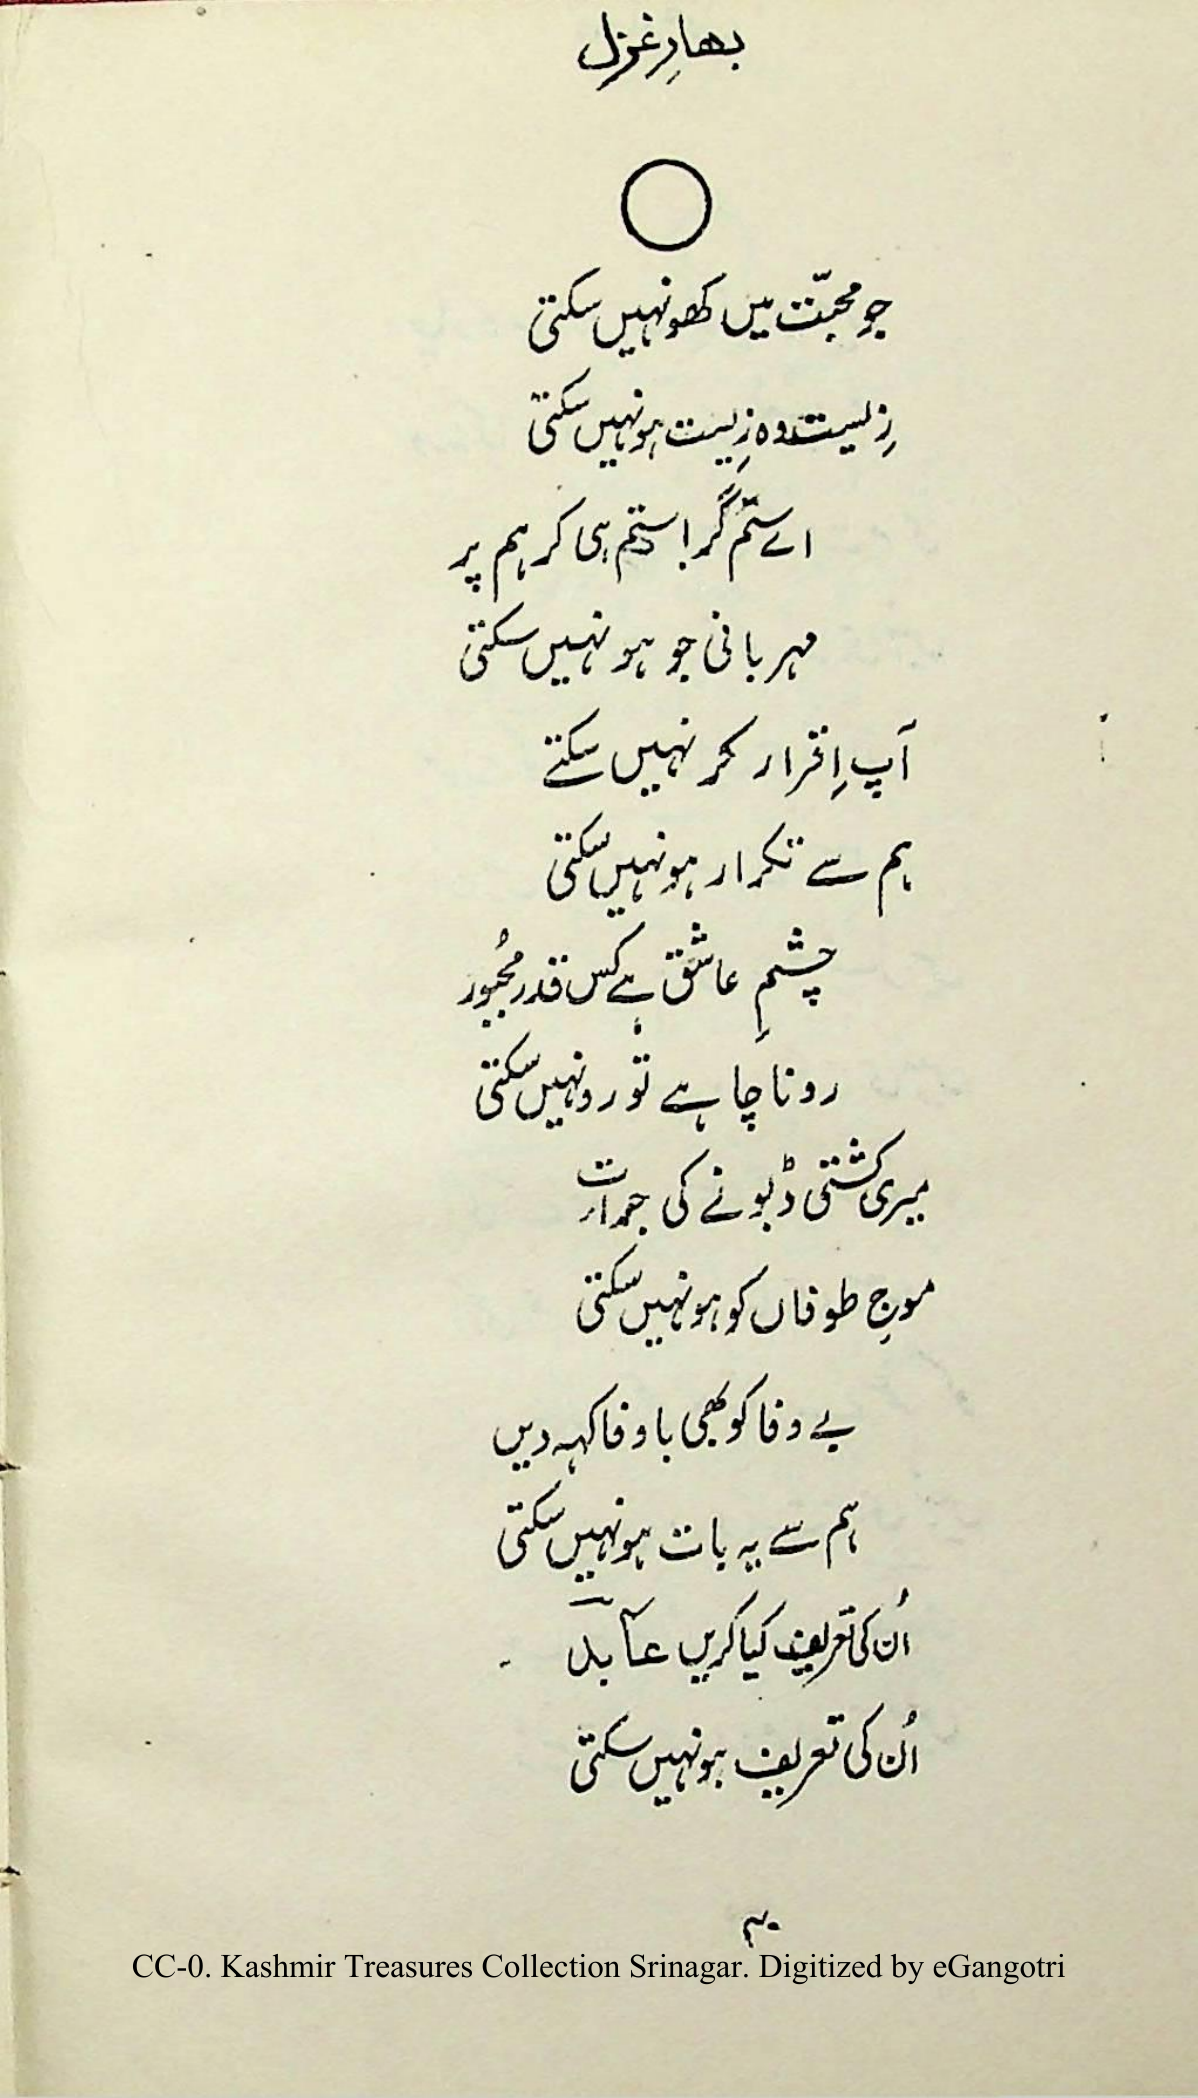 بہارِ غزل
جو محبّت میں کھو نہیں سکتی
زِیست وہ زِیست ہو نہیں سکتی
اے ستم گر! ستم ہی کر ہم پر
مہربانی جو ہو نہیں سکتی
آپ اِقرار کر نہیں سکتے
ہم سے تکرار ہو نہیں سکتی
چشمِ عاشق ہے کس قدر مجُبور
رونا چاہے تو رو نہیں سکتی
میری کشتی ڈبونے کی جرات
موجِ طوفاں کو ہو نہیں سکتی
بے وفا کو بھی باوفا کہہ دیں
ہم سے یہ بات ہو نہیں سکتی
اُن کی تعریف کیا کریں عابد
اُن کی تعریف ہو نہیں سکتی
۳۰
CC-0. Kashmir Treasures Collection Srinagar. Digitized by eGangotri